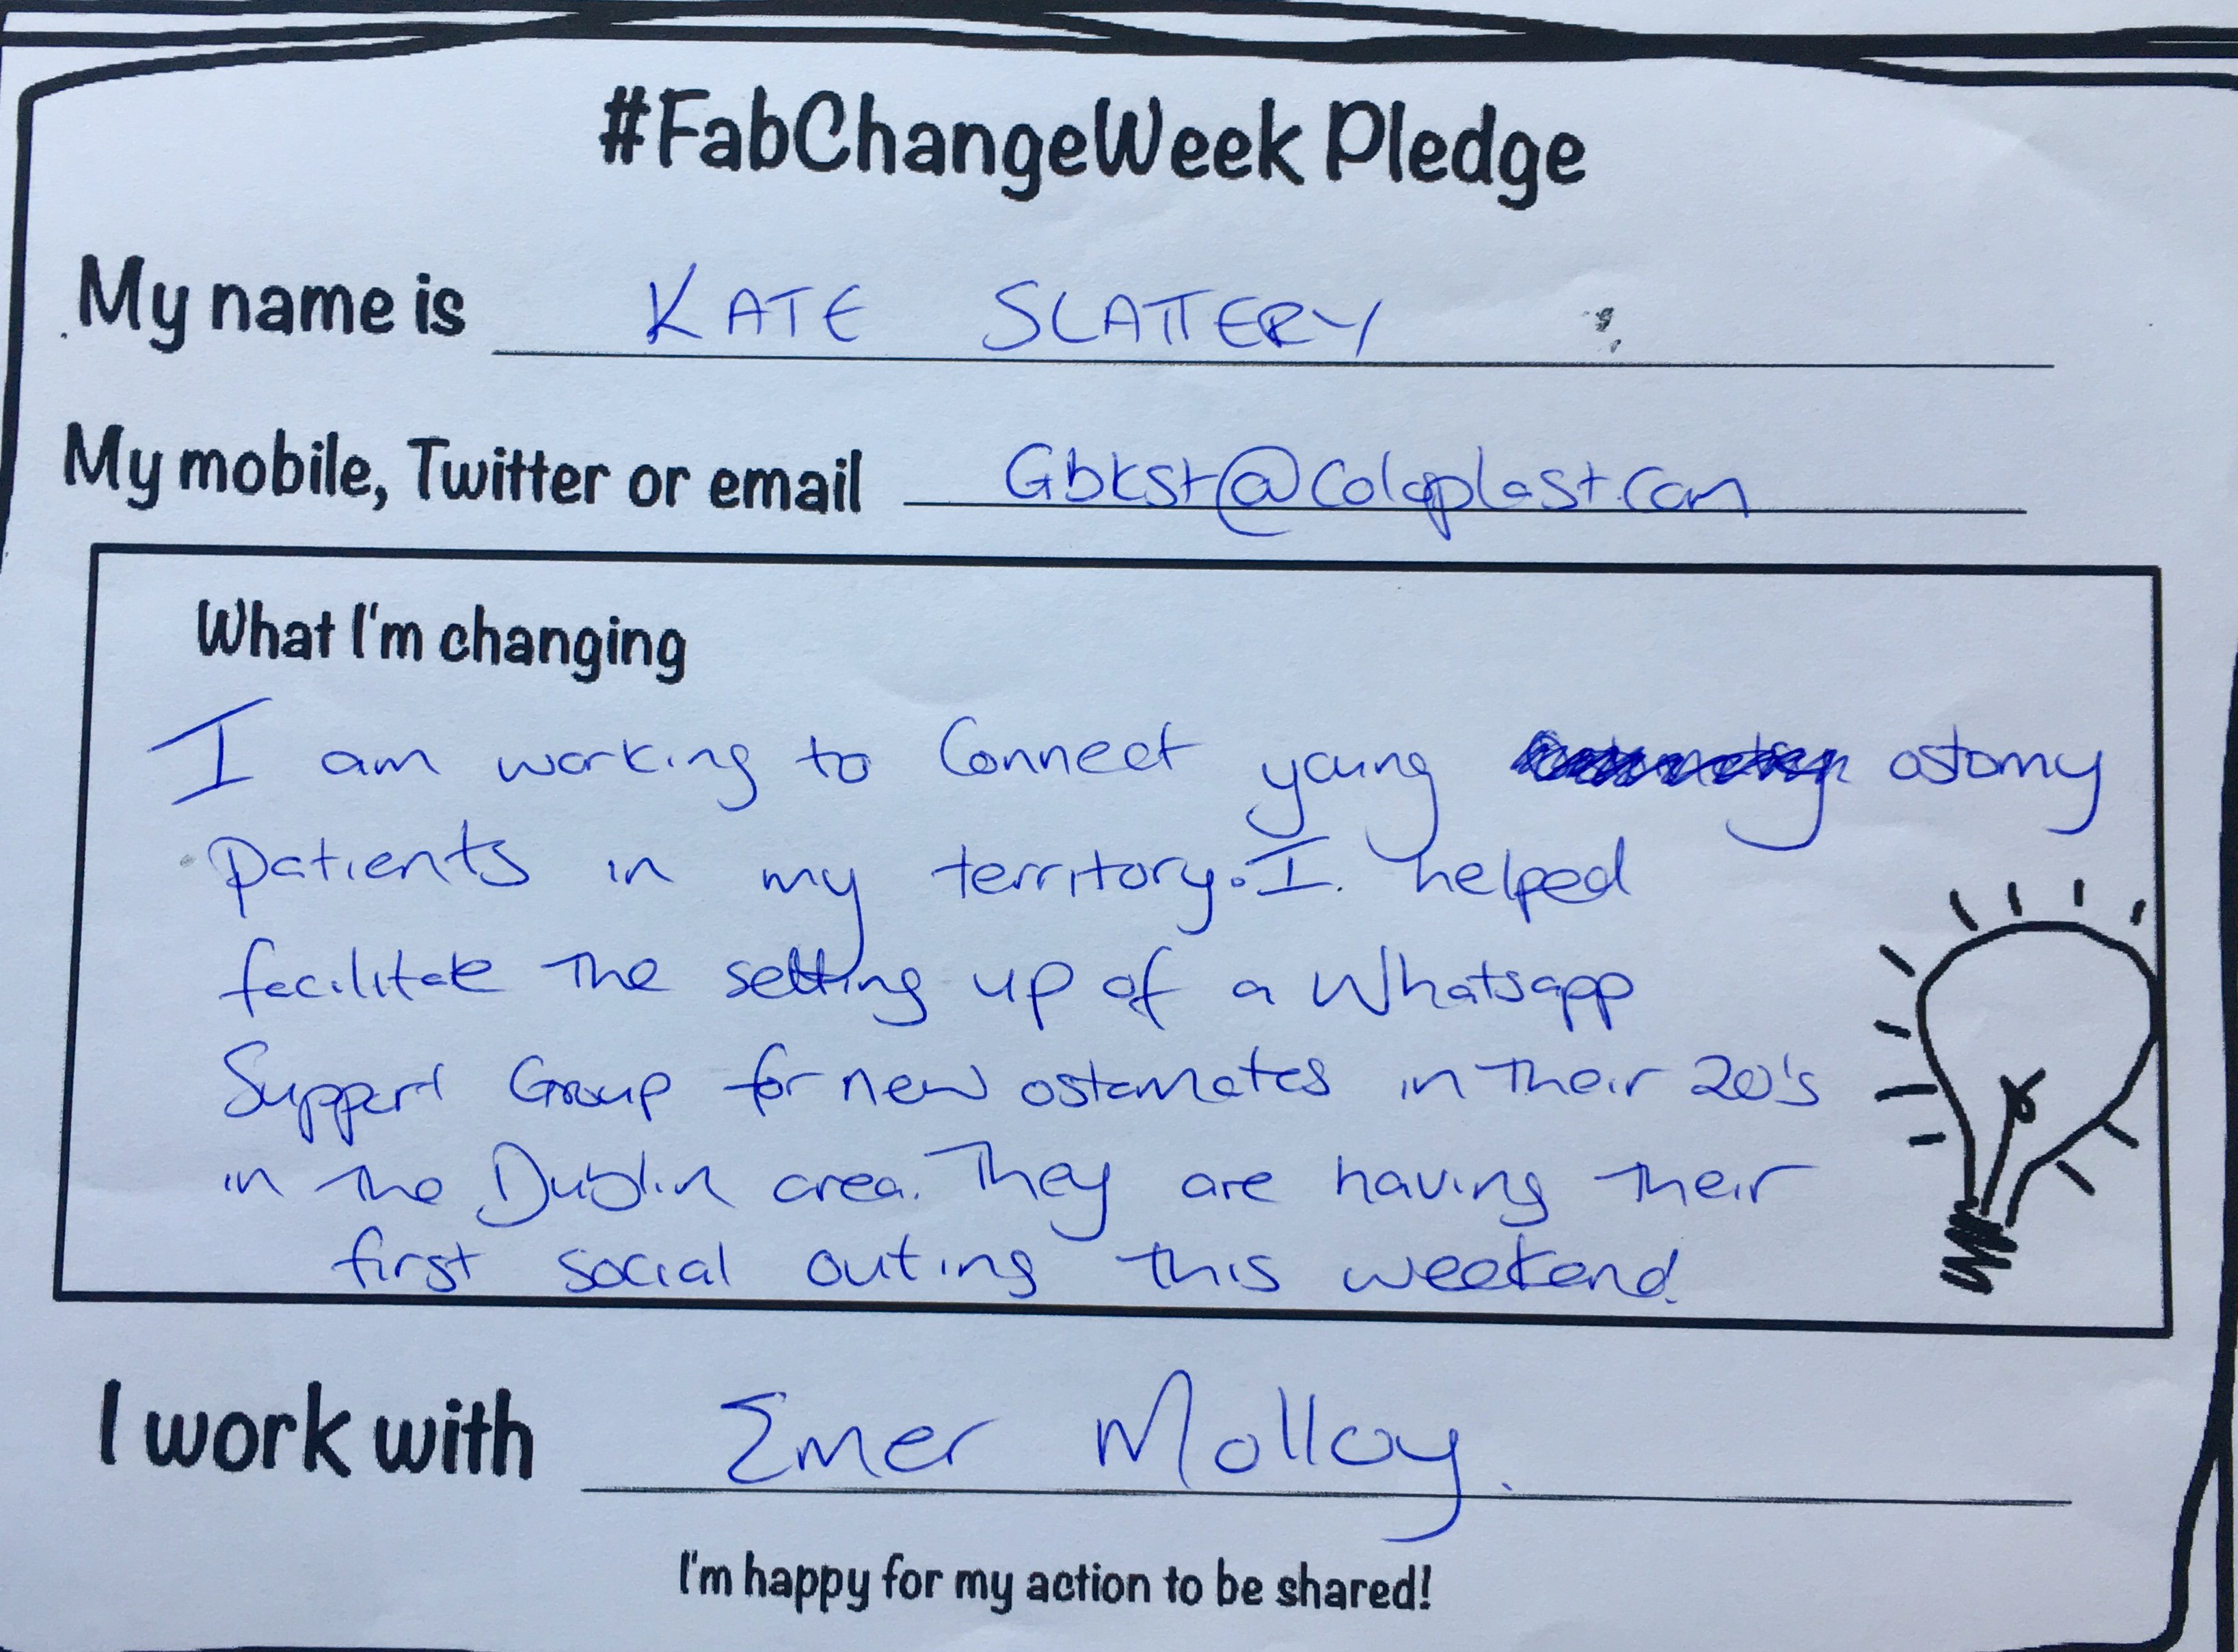 #FabChangeWeek Pledge
My name is KATE SLATTERY
My mobile, Twitter or email Gbkst@coloplast.com
What I'm changing
I am working to Connect young ostomy
patients in my territory. I. helped
facilitate the setting up of a Whatsapp
Support Group for new ostomates in their 20's
in the Dublin area. They are having their
first social outing this weekend.
I work with Emer Molloy.
I'm happy for my action to be shared!